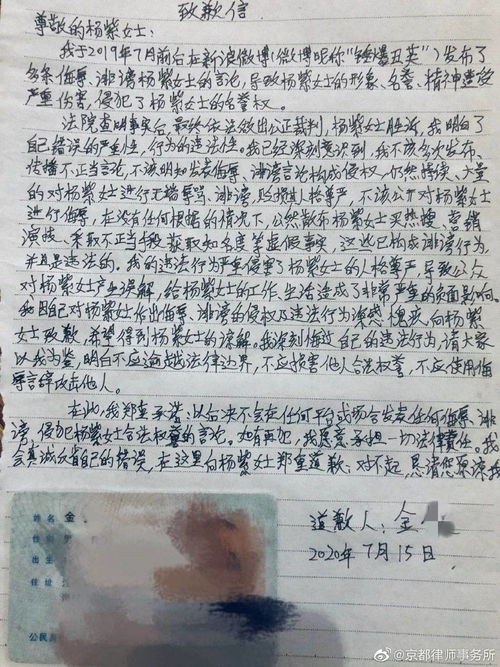 致歉信
尊敬的杨紫女士:
我于2019年7月前后在新浪微博(微博昵称"锤爆丑芙")发布了
多条侮辱、诽谤杨紫女士的言论,导致杨紫女士的形象、名誉、精神遭受
严重伤害,侵犯了杨紫女士的名誉权。
法院查明事实后,最终依法做出公正裁判,杨紫女士胜诉,我明白了
自己错误的严重性,行为的违法性。我已经深刻意识到,我不该多次发布、
传播不正当言论,不该明知发表侮辱、诽谤言论构成侵权,仍然持续、大量
的对杨紫女士进行无端辱骂、诽谤,贬损其人格尊严,不该公开对杨紫女士
进行侮辱,在没有任何根据的情况下,公然散布杨紫女士买热搜、营销
演技、采取不正当手段获取知名度等虚假事实,这些已构成诽谤行为,
并且是违法的。我的违法行为严重侵害了杨紫女士的人格尊严,导致公众
对杨紫女士产生误解,给杨紫女士的工作、生活造成了非常严重的负面影响。
我因自己对杨紫女士作出侮辱、诽谤的侵权及违法行为深感愧疚,向杨紫
女士致歉,希望得到杨紫女士的谅解。我深刻悔过自己的违法行为,请大家
以我为鉴,明白不应逾越法律边界,不应损害他人合法权益,不应使用侮
辱言辞攻击他人。
在此,我郑重承诺:以后决不会在任何平台或场合发表任何侮辱、诽
谤、侵犯杨紫女士合法权益的言论。如有再犯,我愿意承担一切法律责任。我
会真诚忏悔自己的错误,在这里向杨紫女士郑重道歉:对不起,恳请您原谅我。
道歉人:金
2020年7月15日
姓名 金
性别 男
出生
住址
公民身
@京都律师事务所